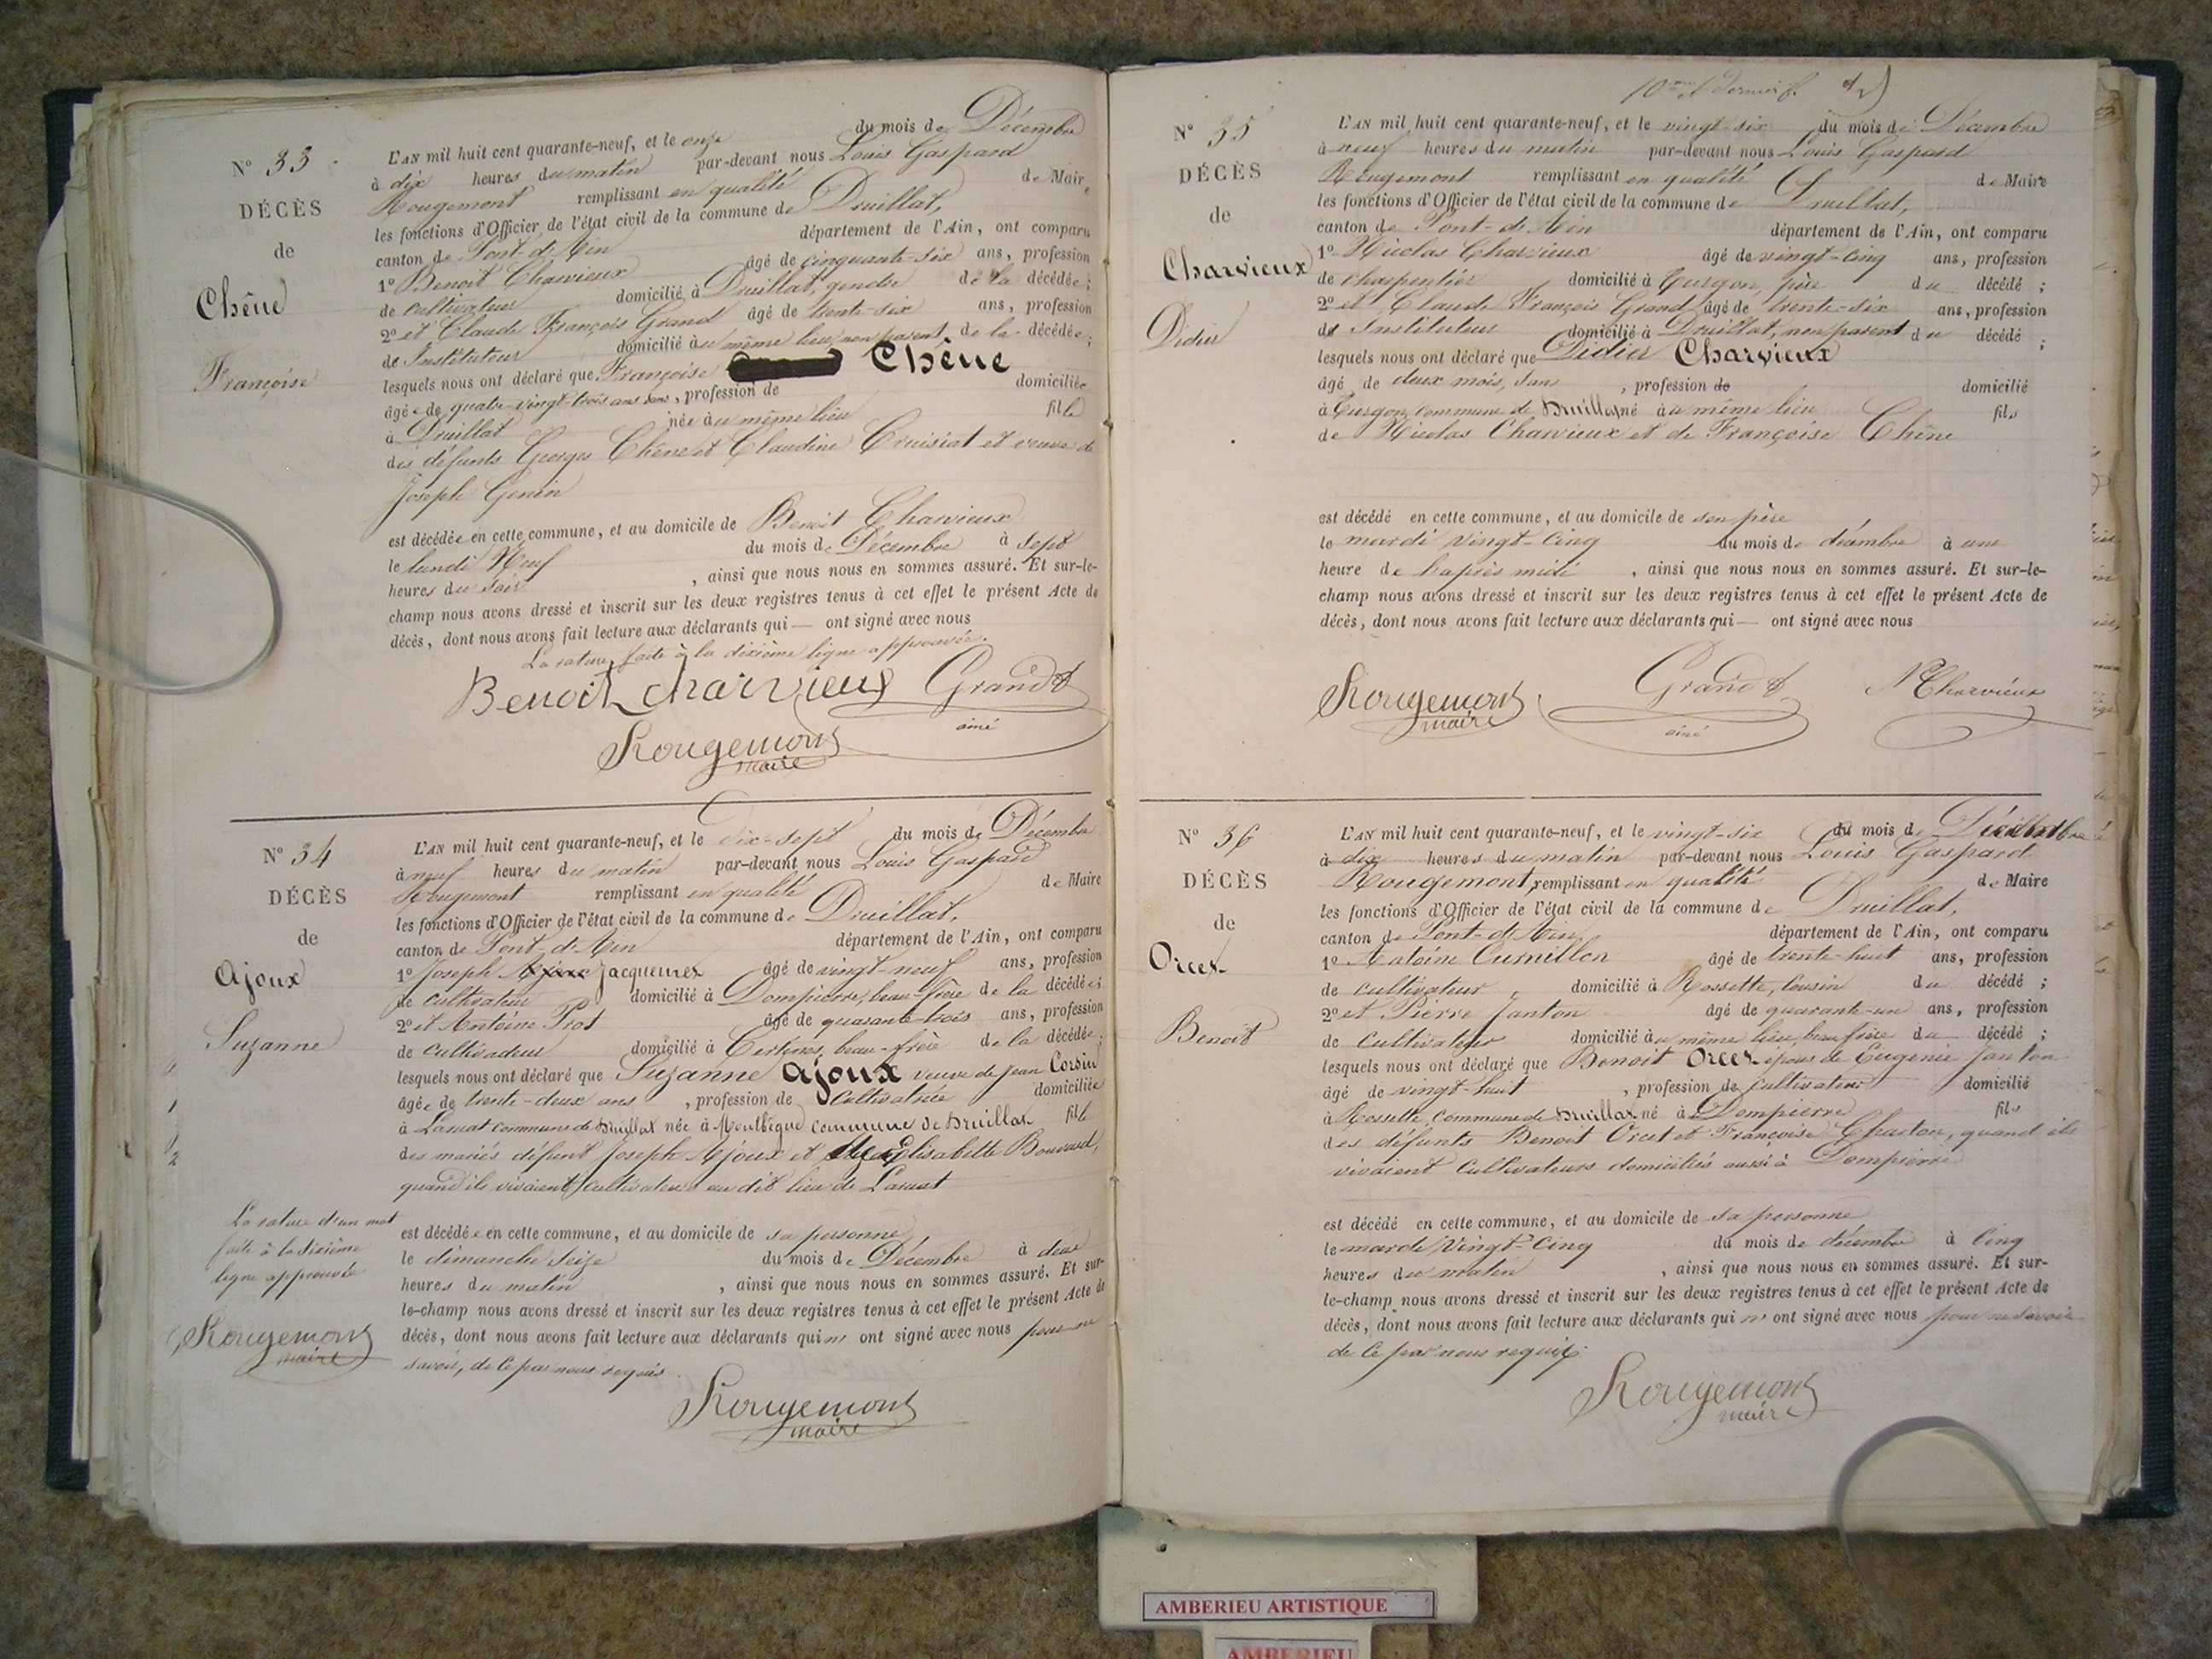 N° 33
DÉCÈS
de
Chêne
Françoise
L'AN mil huit cent quarante-neuf, et le onze du mois de Décembre
à dix heures du matin par-devant nous Louis Gaspard
Rougemont remplissant en qualité de Maire
les fonctions d'Officier de l'état civil de la commune de Druillat,
canton de Pont-d'Ain département de l'Ain, ont comparu
1° Benoit Charvieux âgé de cinquante-six ans, profession
de cultivateur domicilié à Druillat, gendre de la décédée ;
2° et Claude François Grand âgé de trente-six ans, profession
de Instituteur domicilié au même lieu, non parent, de la décédée ;
lesquels nous ont déclaré que Françoise Chêne
âgée de quatre-vingt-trois ans, sans, profession de domiciliée
à Druillat née au même lieu fille
des défunts Georges Chêne et Claudine Cruisiat et veuve de
Joseph Genin
est décédée en cette commune, et au domicile de Benoit Charvieux
le lundi Neuf du mois de Décembre à sept
heures du soir, ainsi que nous nous en sommes assuré. Et sur-le-
champ nous avons dressé et inscrit sur les deux registres tenus à cet effet le présent Acte de
décès, dont nous avons fait lecture aux déclarants qui — ont signé avec nous
La rature faite à la dixième ligne approuvée.
Benoit charvieux Grand
ainé
Rougemont
maire
N° 34
DÉCÈS
de
Ajoux
Suzanne
L'AN mil huit cent quarante-neuf, et le dix-sept du mois de Décembre
à neuf heures du matin par-devant nous Louis Gaspard
Rougemont remplissant en qualité de Maire
les fonctions d'Officier de l'état civil de la commune de Druillat,
canton de Pont-d'Ain département de l'Ain, ont comparu
1° Joseph Jacquemet âgé de vingt-neuf ans, profession
de cultivateur domicilié à Dompierre, beau-frère de la décédée ;
2° et Antoine Prot âgé de quarante-trois ans, profession
de cultivateur domicilié à Certines, beau-frère de la décédée ;
lesquels nous ont déclaré que Suzanne Ajoux veuve de Jean Corsin
âgée de trente-deux ans, profession de Cultivatrice domiciliée
à Larnat commune de Druillat née à commune de Druillat fille
des mariés défunt Joseph Ajoux et Elisabette Bouvard,
quand ils vivaient cultivateurs au dit lieu de Larnat
La rature d'un mot
faite à la sixième
ligne approuvée
Rougemont
maire
est décédée en cette commune, et au domicile de sa personne
le dimanche Seize du mois de Décembre à deux
heures du matin, ainsi que nous nous en sommes assuré. Et sur-
le-champ nous avons dressé et inscrit sur les deux registres tenus à cet effet le présent Acte de
décès, dont nous avons fait lecture aux déclarants qui n' ont signé avec nous pour ne
savoir, de ce par nous requis
Rougemont
maire
10me et dernier f.
N° 35
DÉCÈS
de
Charvieux
Didier
L'AN mil huit cent quarante-neuf, et le vingt-six du mois de Décembre
à neuf heures du matin par-devant nous Louis Gaspard
Rougemont remplissant en qualité de Maire
les fonctions d'Officier de l'état civil de la commune de Druillat,
canton de Pont-d'Ain département de l'Ain, ont comparu
1° Nicolas Charvieux âgé de vingt-cinq ans, profession
de charpentier domicilié à Turgon, père du décédé ;
2° et Claude François Grand âgé de trente-six ans, profession
de Instituteur domicilié à Druillat, non parent du décédé ;
lesquels nous ont déclaré que Didier Charvieux
âgé de deux mois, sans, profession de domicilié
à Turgon, commune de Druillat né au même lieu fils
de Nicolas Charvieux et de Françoise Chêne
est décédé en cette commune, et au domicile de son père
le mardi vingt-cinq du mois de décembre à une
heure de l'après midi, ainsi que nous nous en sommes assuré. Et sur-le-
champ nous avons dressé et inscrit sur les deux registres tenus à cet effet le présent Acte de
décès, dont nous avons fait lecture aux déclarants qui — ont signé avec nous
Rougemont Grand N Charvieux
maire ainé
N° 36
DÉCÈS
de
Orcet
Benoit
L'AN mil huit cent quarante-neuf, et le vingt-six du mois de Décembre
à dix heures du matin par-devant nous Louis Gaspard
Rougemont, remplissant en qualité de Maire
les fonctions d'Officier de l'état civil de la commune de Druillat,
canton de Pont-d'Ain département de l'Ain, ont comparu
1° Antoine Cumillon âgé de trente-huit ans, profession
de cultivateur, domicilié à Rossette, cousin du décédé ;
2° et Pierre Janton âgé de quarante-un ans, profession
de cultivateur domicilié au même lieu, beau frère du décédé ;
lesquels nous ont déclaré que Benoit Orcet époux de Eugenie Janton
âgé de vingt-huit, profession de cultivateur domicilié
à Rossette, commune de Druillat né à Dompierre fils
des défunts Benoit Orcet et Françoise Charton, quand ils
vivaient cultivateurs domiciliés aussi à Dompierre
est décédé en cette commune, et au domicile de sa personne
le mardi Vingt-Cinq du mois de décembre à cinq
heures du matin, ainsi que nous nous en sommes assuré. Et sur-
le-champ nous avons dressé et inscrit sur les deux registres tenus à cet effet le présent Acte de
décès, dont nous avons fait lecture aux déclarants qui n' ont signé avec nous pour ne savoir
de ce par nous requis.
Rougemont
maire
AMBERIEU ARTISTIQUE
AMBERIEU